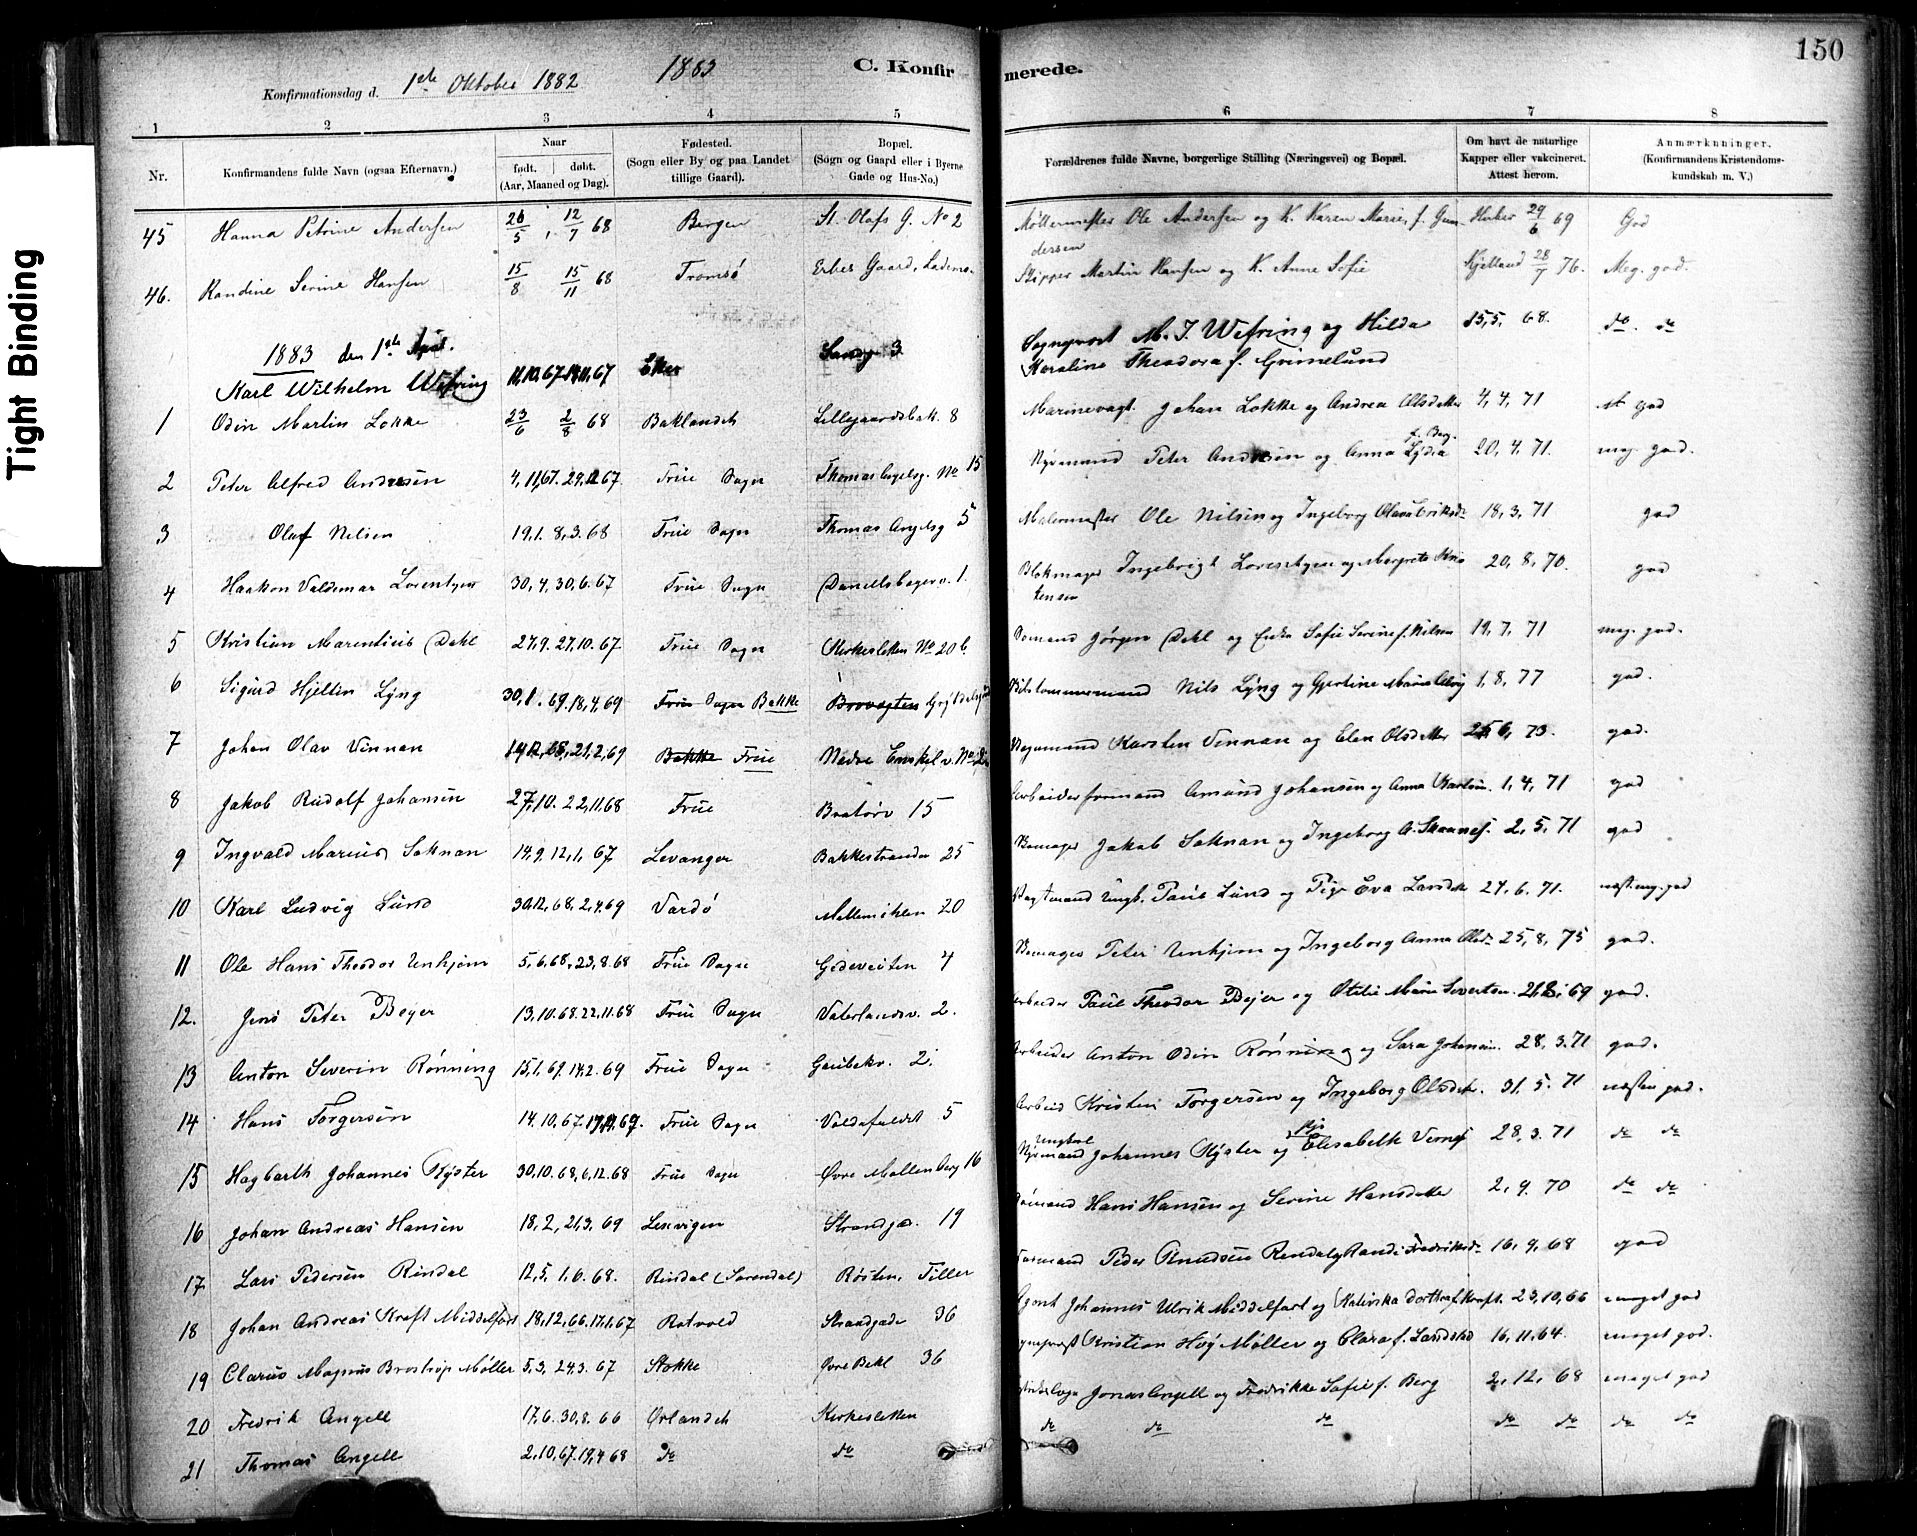 Tight Binding
150
Konfirmationsdag d. 1ste Oktober 1882 1883 C. Konfirmerede.
1 2 3 4 5 6 7 8
Nr.
Konfirmandens fulde Navn (ogsaa Efternavn.)
Naar
født. døbt.
(Aar, Maaned og Dag).
Fødested.
(Sogn eller By og paa Landet
tillige Gaard).
Bopæl.
(Sogn og Gaard eller i Byerne
Gade og Hus-No.)
Forældrenes fulde Navne, borgerlige Stilling (Næringsvei) og Bopæl.
Om havt de naturlige
Kapper eller vakcineret.
Attest herom.
Anmærkninger.
(Konfirmandens Kristendoms-
kundskab m. V.)
45 Hanna Petrine Andersen 26/5, 12/7 68 Bergen St. Olafs G. No 2 Møllermester Ole Andersen og K. Karen Marie, f. Gundersen 29/6 69 God
46. Randine Serine Hansen 15/8 15/11 68 Tromsø Gaard, Skipper Martin Hansen og K. Anne Sofie Kjelland 28/7 76. Meg. god.
1883 den 1ste April.
Karl Wilhelm Wefring 11,10,67 67 Eker 3 Sogneprest M. J. Wefring og Hilda Karoline Theodora f. Grimelund 15,5, 68. do. do
1 Odin Martin Løkke 23/6 2/8 68 Baklandet Lillegaardsbak. 8 Marinevagt. Johan Løkke og Andrea Olsdatter 4,4,71 god
2 Peter Alfred Andersen 4,11,67. 67 Frue Sogn Thomas Angelsg. No 15 Peter Andersen og Anna Lydia f. Berg. 20,4,71. meg. god.
3 Olaf Nilsen 19,1. 8,3.68 Frue Sogn Thomas Angelsg 5 Malermester Ole Nilsen og Ingeborg Olava Eriksdr 18,3,71 god
4 Haakon Valdemar Lorentzen 30,4,30,6.67 Frue Sogn 1. Blokmager Ingebrigt Lorentzen og Margrete Kristensen 20,8,70. god
5 Kristian Marentius Dahl 27,9. 27,10.67 Frue Sogn Kirkesletten No 20 b. Jørgen Dahl og Sofie Serine f. Nilsen 19,7,71 meg. god.
6 Sigurd Hjelten Lyng 30,1.69,18,4,69 Frue Sogn Bakke Brovagten Nils Lyng og Gjertine 1,8,77 god.
7 Johan Olav Vinnan 14,12,68,21,2,69 Bakke Frue Nedre Enkel v. No Karsten Vinnan og Elen Olsdatter 73. god.
8 Jakob Rudolf Johansen 27,10. 22,11.68 Frue Bratørv 15 Arbeidsformand Amund Johansen og Anna Karlsen. 1,4,71 god
9 Ingvald Marius Saknan 14,9. 12,1. 67 Levanger Bakkestranden 25 Jakob Saknan og Ingeborg A. Skaanes. 2,5,71 god
10 Karl Ludvig Lund 30,12,68,2,4.69 Vardø Mellemiklen 20 Ungk. Paul Lund og Pige Eva 6.71. næst. meg. god
11 Ole Hans Theodor Unhjem 5,6.68,23,8.68 Frue Sogn Gjeteveiten 4 Peter Unhjem og Ingeborg Anna Olsdr 25,8,75 god.
12. Jens Peter Beyer 13,10.68.22,11.68 Frue Sogn Vaterlandsv. 2. Arbeider Paul Theodor Bejer og Otelie Marie Severtsen. 69 god.
13 Anton Severin Rønning 15,1.69.14,2.69 Frue Sogn Gaubekv. 2. Arbeider Anton Odin Rønning og Sara Johansen. 28,3.71 god.
14 Hans Torgersen 14.10,67. Frue Sogn Voldafaldet 5 Arbeid Kristen Torgersen og Ingeborg Olsdatter. 31.5.71 næsten god.
15 Hagbarth Johannes Ryster 30,10.68,6,12.68 Frue Sogn Øvre Møllenberg 16 Ungkarl Johannes Ryster og Pige Elisabeth Vernes 28,3.71 do do
16 Johan Andreas Hansen 18,2,21,3.69 Lexvigen Strandgd. 19 Hans Hansen og Serine Hansdatter 2,9.70 do do
17 Lars Pedersen Rindal 12,5. 1,6.68. Rindal (Surendal) Røsten, Tiller Peder Knudsen Rindal og Randi Fredriksdr 16,9,68 god
18 Johan Andreas Kraft Middelfart 18,12,66.17,1.67 Rotvold Strandgade 36 Agent Johannes Ulrik Middelfart og Dorthea f. Kraft. 23,10,66 meget god
19 Clarus Magnus Brostrup Møller 5,3, 24,3.67 Stokke Øvre Bakl 36 Kristian Høy Møller og Clara f. Landstad 16,11,64. meget god.
20 Fredrik Angell 17,6.30,8.66 Ørlandet Kirkesletten Jonas Angell og Fredrikke Sofie f. Berg 2,12,68 meget god
21 Thomas Angell 2,10,67.19,4 68 do do do do do do do do do